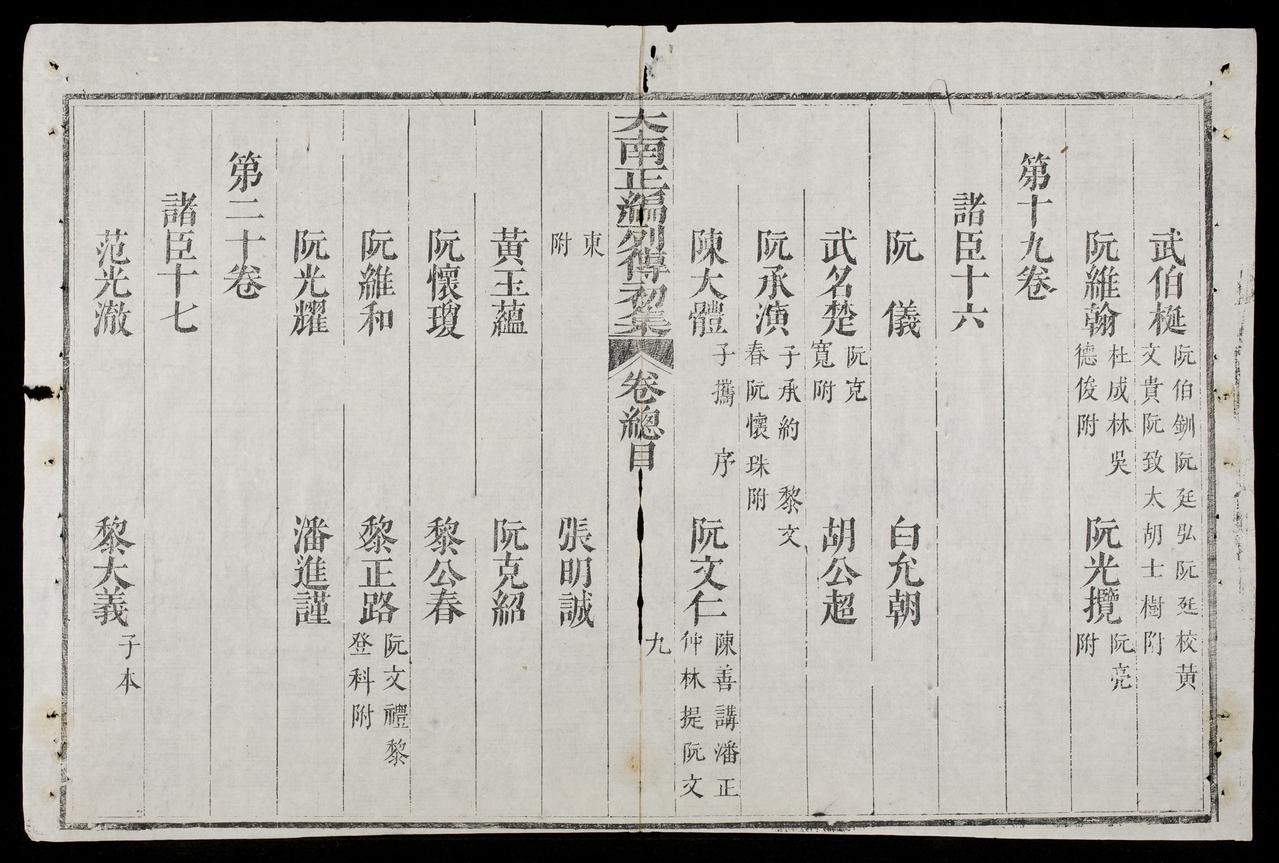 武伯梃 阮伯釧阮廷弘阮廷校黃文貴阮致太胡士樹附
阮維翰 杜成林吳德俊附 阮光攬 阮亮附
第十九卷
諸臣十六
阮儀 白允朝
武名楚 阮克寬附 胡公超
阮承演 子承約 黎文春阮懷珠附
陳大體 子攜 序 阮文仁 陳善講潘正仲林提阮文
大南正編列傳初集 卷總目 九
東附 張明誠
黃玉蘊 阮克紹
阮懷瓊 黎公春
阮維和 黎正路 阮文禮黎登科附
阮光耀 潘進謹
第二十卷
諸臣十七
范光澈 黎大義 子本